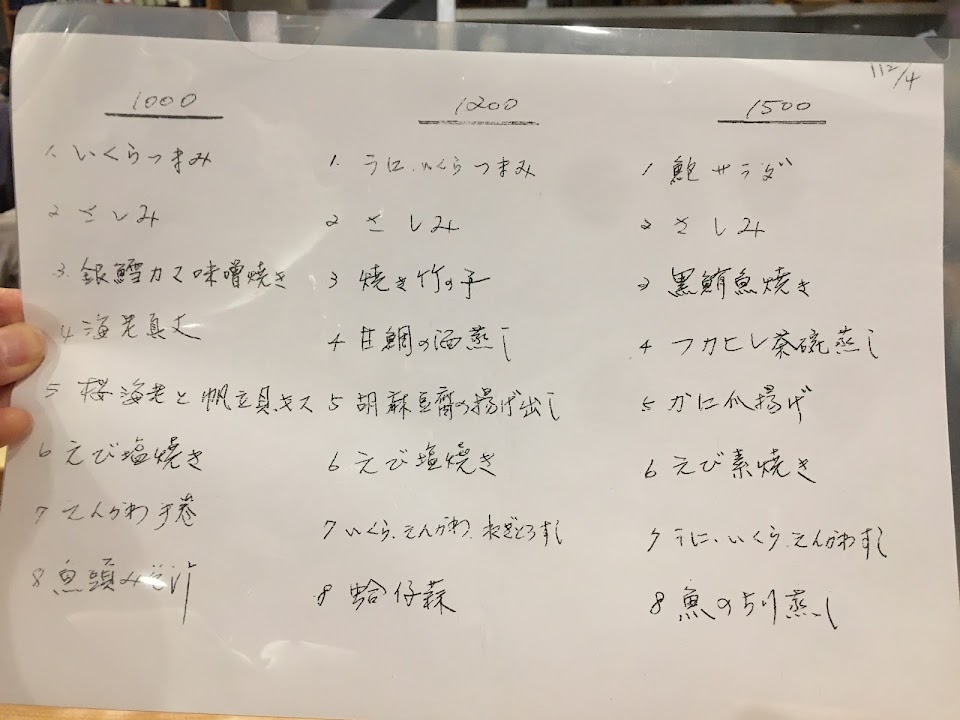 112/4
1000
1. いくらつまみ
2 さしみ
3. 銀鱈カマ味噌焼き
4 海老真丈
5 桜海老と帆立貝キス
6 えび塩焼き
7 えんがわ手巻
8 魚頭みそ汁
1200
1. うに、いくらつまみ
2 さしみ
3 焼き竹の子
4 甘鯛の酒蒸し
5 胡麻豆腐の揚げ出し
6 えび塩焼き
7 いくら、えんがわ、ねぎとろすし
8 蛤仔蘇
1500
1 鮑サラダ
2 さしみ
3 黒鮪魚焼き
4 フカヒレ茶碗蒸し
5 かに爪揚げ
6 えび素焼き
7 うに、いくら、えんがわすし
8 魚のちり蒸し